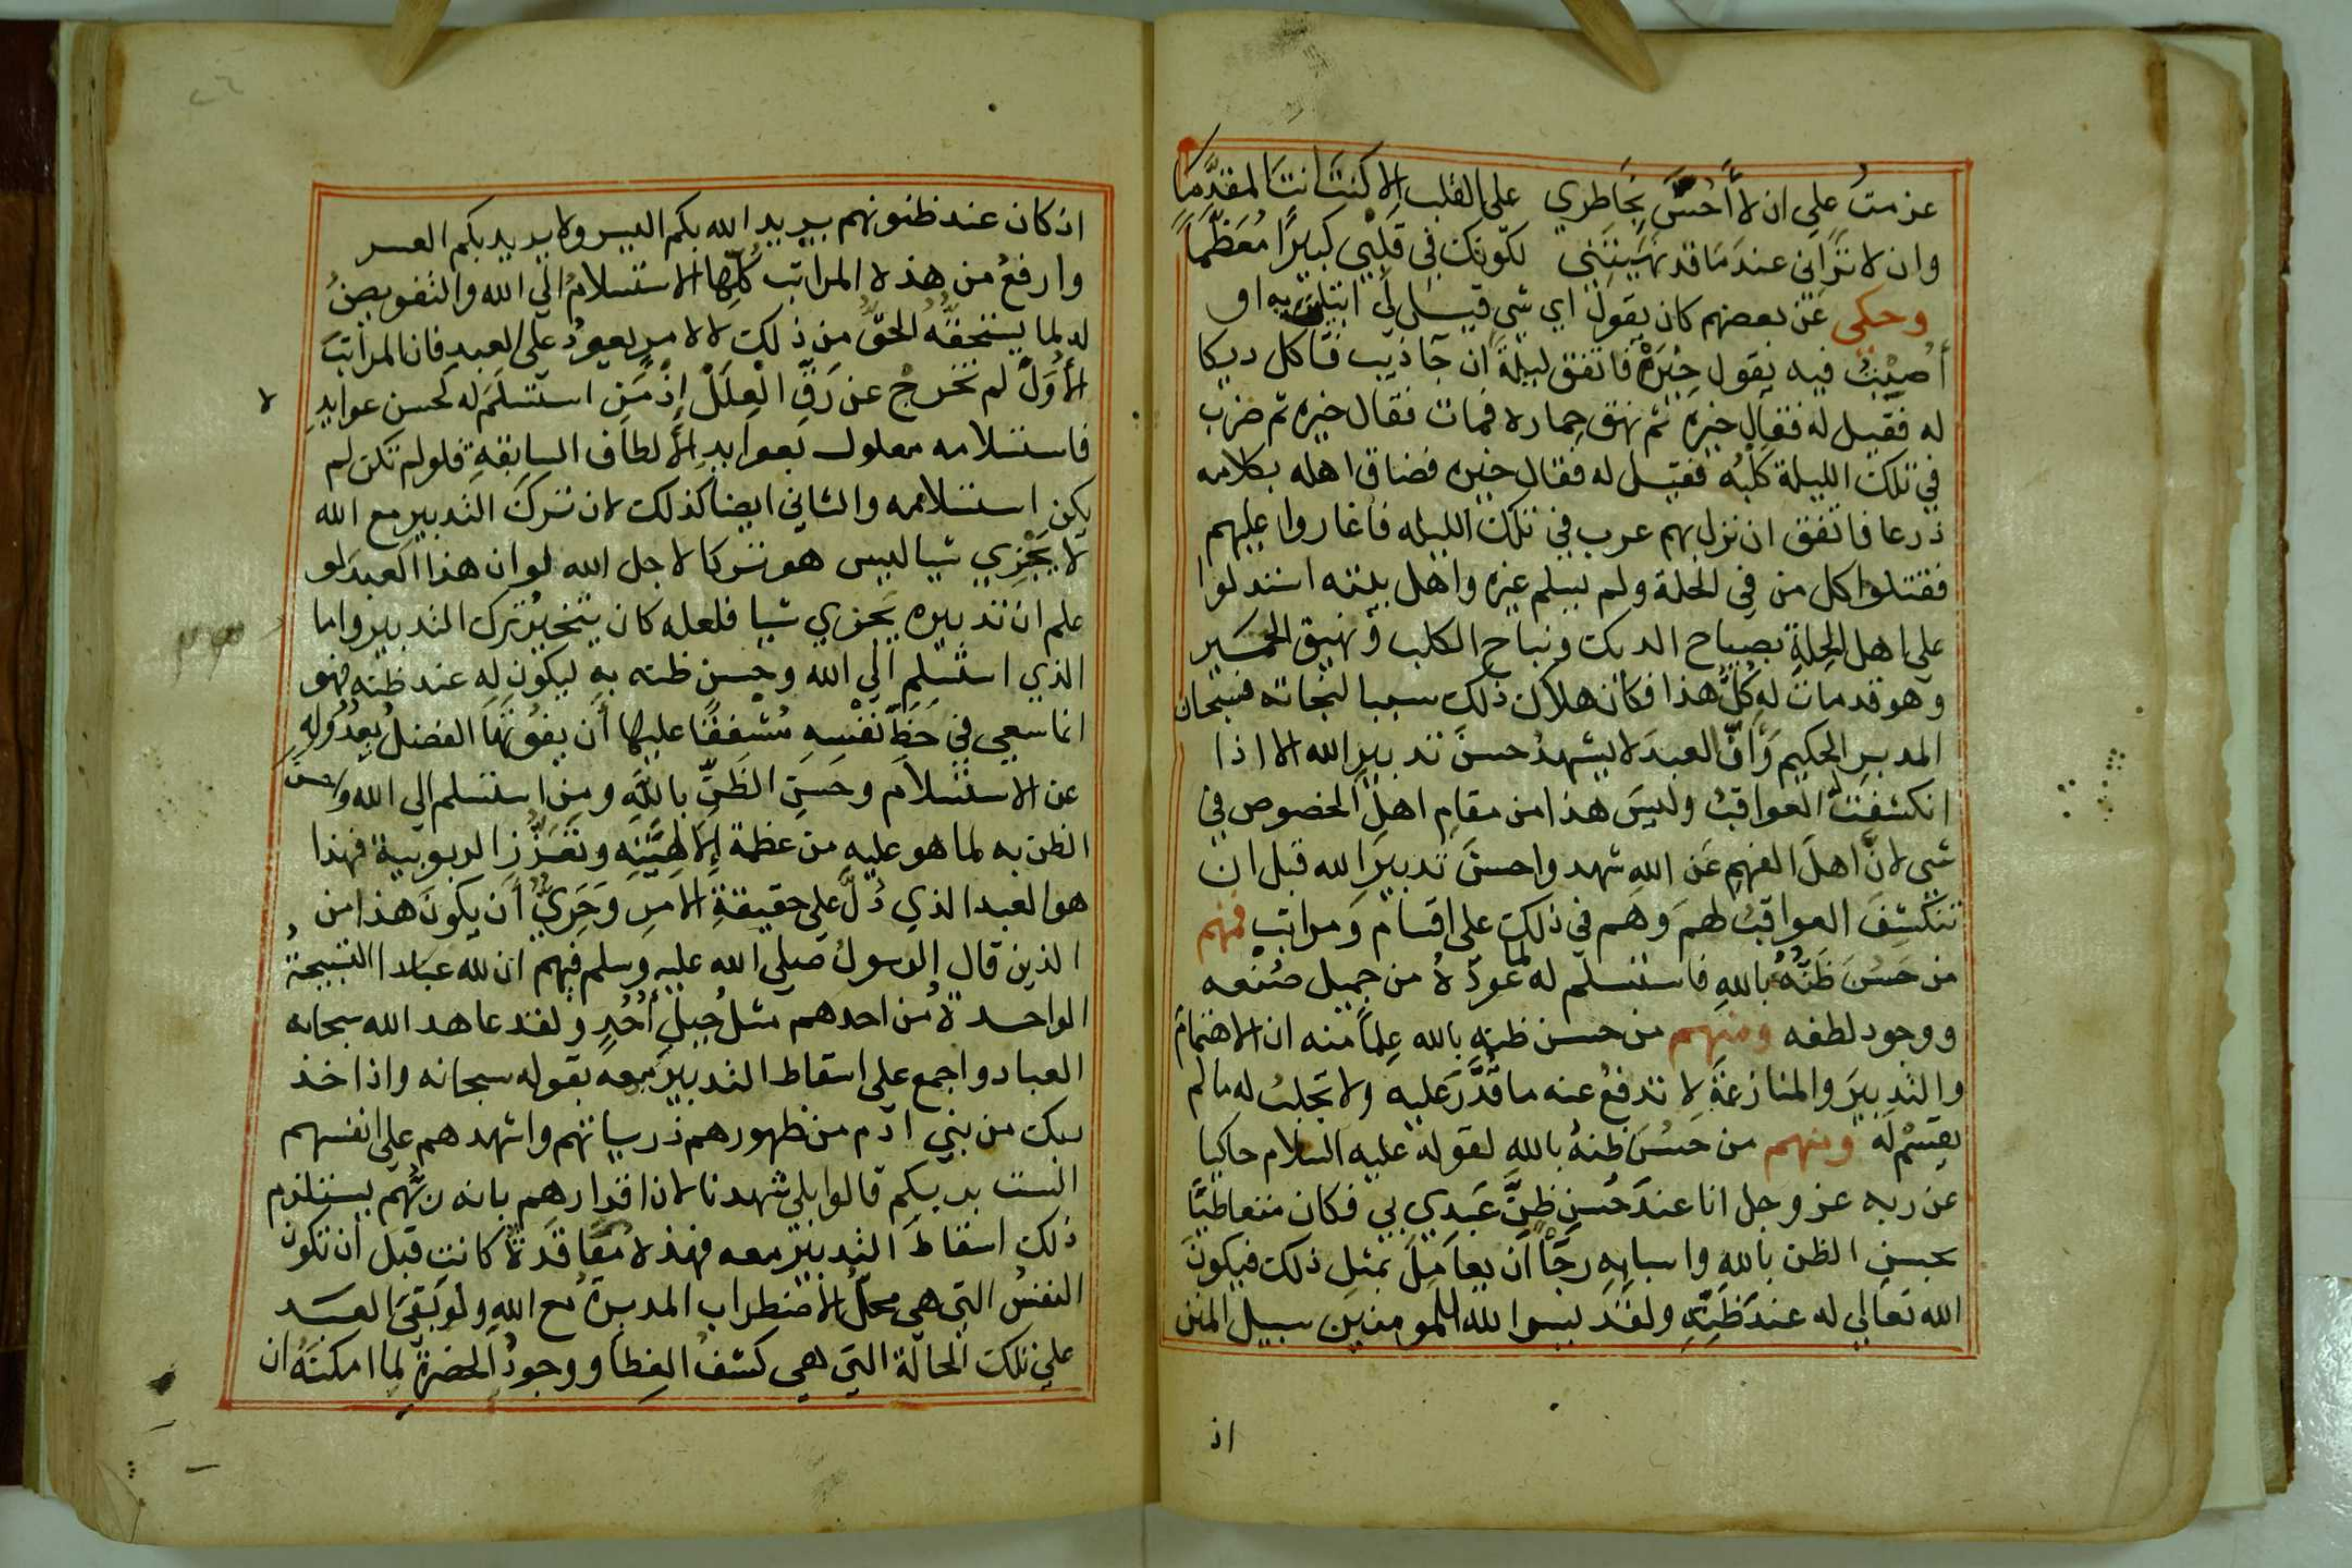 عزمت على ان لا أحسّ بخاطري على القلب الا كنت انت المقدّما
وان لا تراني عند ما قد نهيتني لكونك في قلبي كبيرًا معظّمًا
وحكى عن بعضهم كان يقول اي شي قيل لي ابتليت به او
أصبت فيه يقول خيرة فاتفق ليلة ان جا ذيب فاكل ديكا
له فقيل له فقال خيره ثم نهق حماره فمات فقال خيره ثم ضرب
في تلك الليلة كلبه فقيل له فقال خيره فضاق اهله بكلامه
ذرعا فاتفق ان نزل بهم عرب في تلك الليله فاغاروا عليهم
فقتلوا كل من في الحلة ولم يسلم غيره واهل بيته استدلوا
على اهل الحلة بصياح الديك ونباح الكلب ونهيق الحمير
وهو قد مات له كلّ هذا فكان هلاك ذلك سببا لنجاته فسبحان
المدبر الحكيم وانّ العبد لا يشهد حسن تدبير الله الا اذا
انكشفت العواقب وليس هذا من مقام اهل الخصوص في
شي لانّ اهل الفهم عن الله شهدوا حسن تدبير الله قبل ان
تنكشف العواقب لهم وهم في ذلك على اقسام ومراتب فمنهم
من حسن ظنّه بالله فاستسلم له لما عودّه من جميل صنعه
ووجود لطفه ومنهم من حسن ظنه بالله علمًا منه ان الاهتمام
والتدبير والمنازعة لا تدفع عنه ما قدّر عليه ولا تجلب له ما لم
يقسم له ومنهم من حسن ظنه بالله لقوله عليه السلام حاكيا
عن ربه عز وجل انا عند حسن ظنّ عبدي بي فكان متعاطيًا
بحسن الظن بالله واسبابه رجًا أن يعامل بمثل ذلك فيكون
الله تعالى له عند ظنّه ولقد يسر الله للمومنين سبيل المنن
اذ
اذ كان عند ظنونهم يريد الله بكم اليسر ولا يريد بكم العسر
وارفع من هذه المراتب كلّها الاستسلام الى الله والتفويض
له لما يستحقّه الحقّ من ذلك لا لامر يعود على العبد فان المراتب
الأول لم تخرج عن رقّ العلل إذ من استسلم له لحسن عوايده
فاستسلامه معلول بعوايد الألطاف السابقة فلو لم تكن لم
يكن استسلامه والثاني ايضا كذلك لان ترك التدبير مع الله
لا يجزي شيا ليس هو تركا لاجل الله لو ان هذا العبد لو
علم ان تدبيره يجزي شيا فلعله كان يتخير ترك التدبير واما
الذي استسلم الى الله وحسن ظنه به ليكون له عند ظنه فهو
انما سعى في حظّ نفسه مشفقًا عليها أن يفوتها الفضل بعدوله
عن الاستسلام وحسن الظنّ بالله ومن استسلم الى الله وحسن
الظن به لما هو عليه من عظمة الالهيّة وتعزّز الربوبية فهذا
هو العبد الذي دلّ على حقيقة الامر وحريّ أن يكون هذا من
الذين قال الرسول صلى الله عليه وسلم فيهم ان لله عبادا التسبيحة
الواحدة من احدهم مثل جبل أحد ولقد عاهد الله سبحانه
العباد واجمع على اسقاط التدبير معه بقوله سبحانه واذ اخذ
ربك من بني آدم من ظهورهم ذرياتهم واشهدهم على انفسهم
الست بربكم قالوا بلى شهدنا لان اقرارهم بانه ربّهم يستلزم
ذلك اسقاط التدبير معه فهذه معاقدة كانت قبل ان تكون
النفس التي هي محلّ الاضطراب المدبرة مع الله ولو بقى العبد
على تلك الحالة التي هي كشف الغطا ووجود الحضرة لما امكنه ان